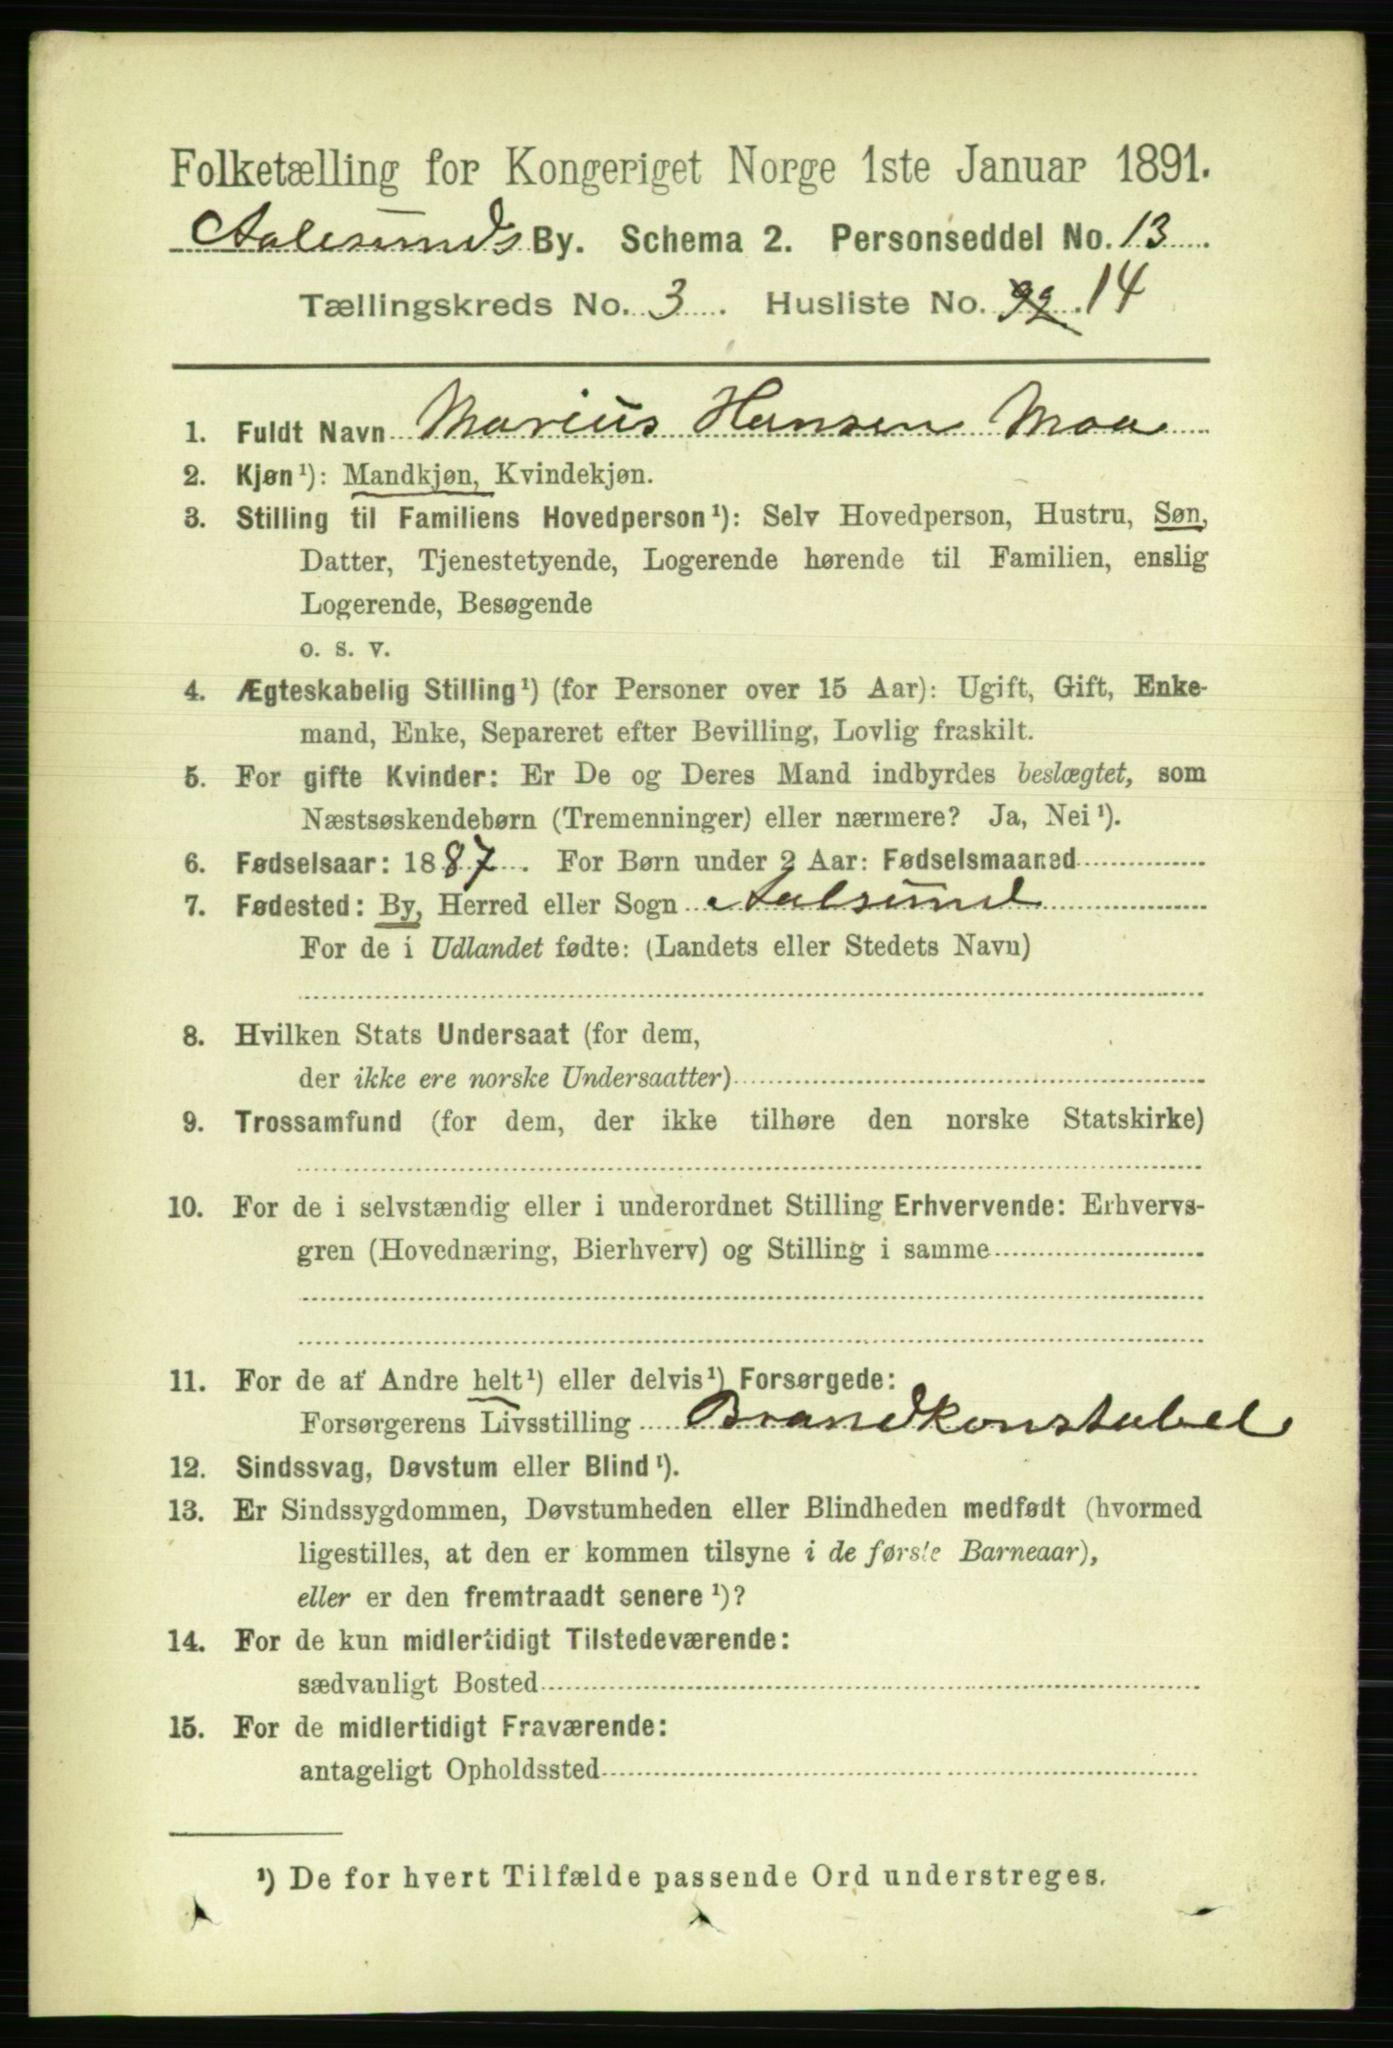 Folketælling for Kongeriget Norge 1ste Januar 1891.
Aalesunds By. Schema 2. Personseddel No. 13
Tællingskreds No. 3. Husliste No. 92. 14
1. Fuldt Navn Marius Hansen Moa
2. Kjøn¹): Mandkjøn, Kvindekjøn.
3. Stilling til Familiens Hovedperson¹): Selv Hovedperson, Hustru, Søn,
Datter, Tjenestetyende, Logerende hørende til Familien, enslig
Logerende, Besøgende
o. s. v.
4. Ægteskabelig Stilling¹) (for Personer over 15 Aar): Ugift, Gift, Enke-
mand, Enke, Separeret efter Bevilling, Lovlig fraskilt.
5. For gifte Kvinder: Er De og Deres Mand indbyrdes beslægtet, som
Næstsøskendebørn (Tremenninger) eller nærmere? Ja, Nei¹).
6. Fødselsaar: 1887. For Børn under 2 Aar: Fødselsmaaned
7. Fødested: By, Herred eller Sogn Aalsund
For de i Udlandet fødte: (Landets eller Stedets Navn)
8. Hvilken Stats Undersaat (for dem,
der ikke ere norske Undersaatter)
9. Trossamfund (for dem, der ikke tilhøre den norske Statskirke)
10. For de i selvstændig eller i underordnet Stilling Erhvervende: Erhvervs-
gren (Hovednæring, Bierhverv) og Stilling i samme
11. For de af Andre helt¹) eller delvis¹) Forsørgede:
Forsørgerens Livsstilling Brandkonstabel
12. Sindssvag, Døvstum eller Blind¹).
13. Er Sindssygdommen, Døvstumheden eller Blindheden medfødt (hvormed
ligestilles, at den er kommen tilsyne i de første Barneaar),
eller er den fremtraadt senere¹)?
14. For de kun midlertidigt Tilstedeværende:
sædvanligt Bosted
15. For de midlertidigt Fraværende:
antageligt Opholdssted
¹) De for hvert Tilfælde passende Ord understreges.